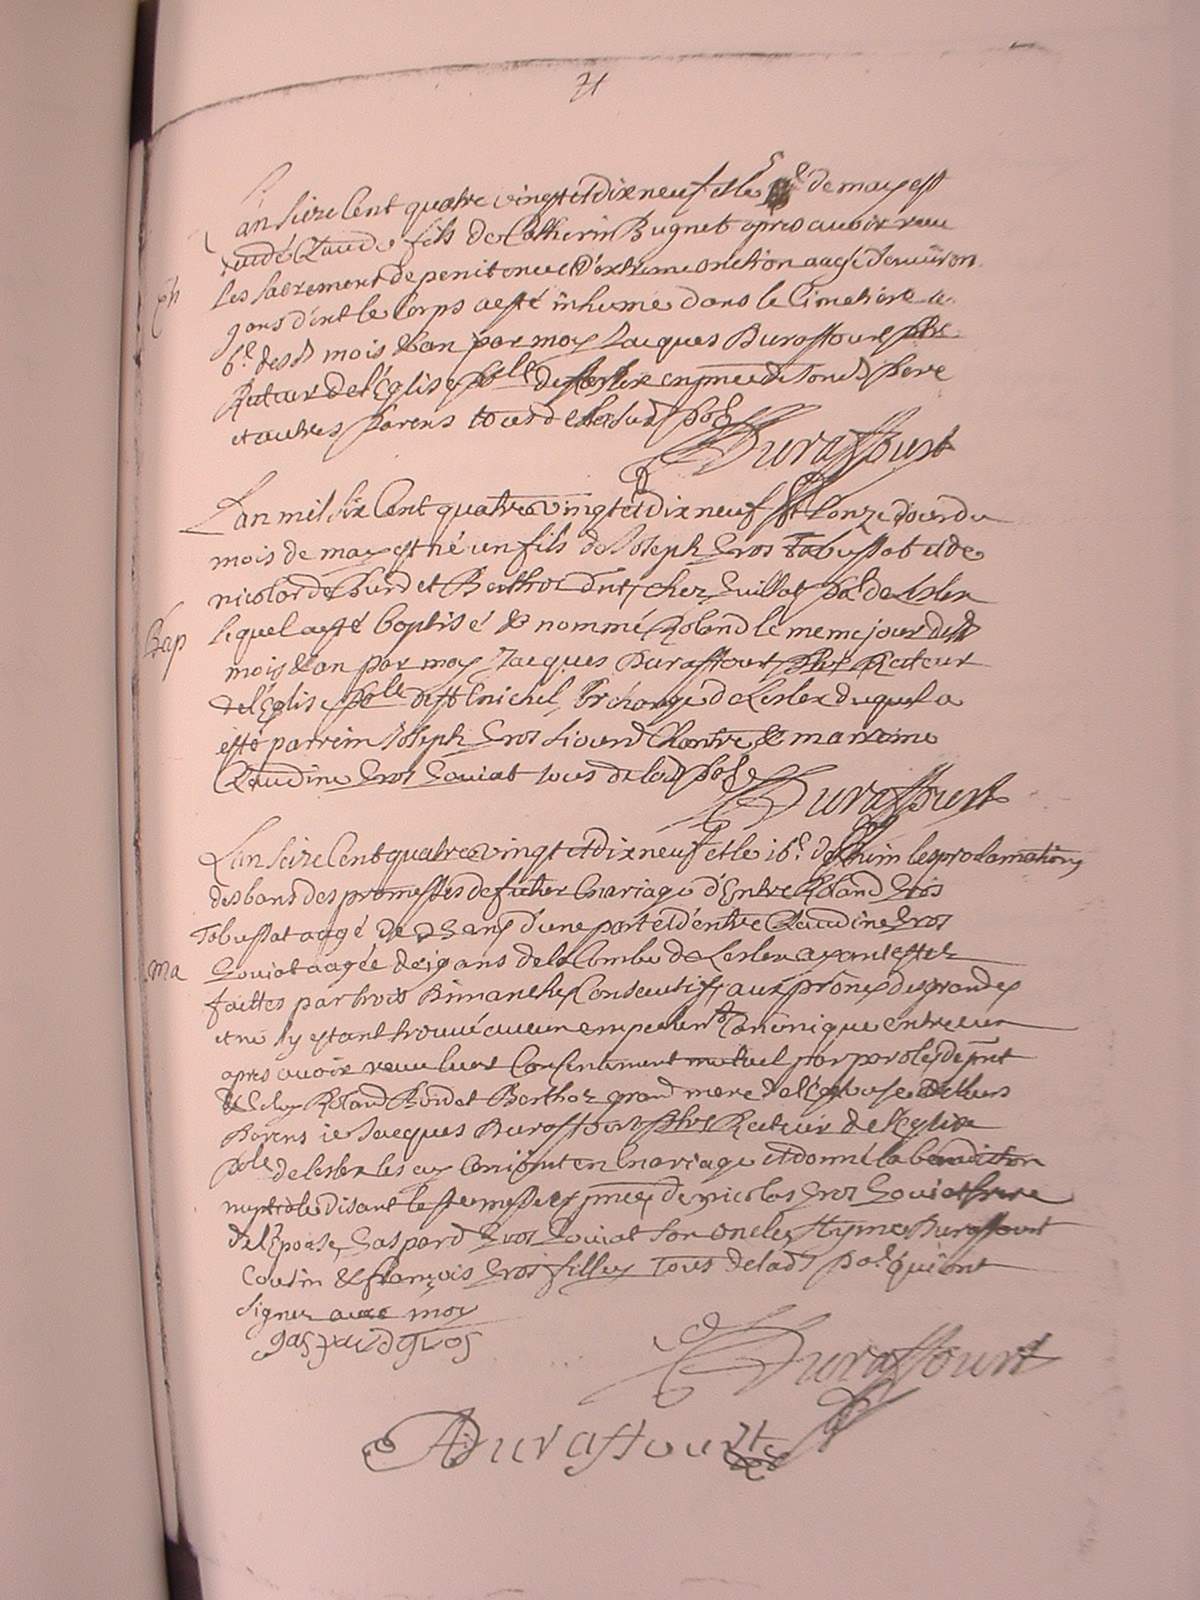 21
L'an seize Cent quatre vingt et dix neuf et le 5e de may est
decedé Claude fils de Catherin Bugnet apres avoir receu
Les sacrement de penitence d'extreme onction aagé d'environ
9 ans dont le Corps a esté inhumé dans le Cimetiere le
Eñ
6e desd mois & an par moy Jacques Duraffourt ptre
Recteur de l'Eglise polle de en pnce de sond pere
et autres parens tous de lasusd
Duraffourt
Lan mil six Cent quatre vingt et dix neuf et Lonze jour du
mois de may est né un fils de Joseph Gros Tabussat et de
nicolarde Burdet Berthod chez Guillat de Lesler
Bap
lequel a esté baptisé & nommé Roland le meme jour desd
mois & an par moy Jacques Duraffourt ptre Recteur
de l'Eglise polle de St michel Archange de Lesler duquel a
esté parrein Joseph Gros &
Claudine Gros Goviat tous de lad
Duraffourt
Lan seize Cent quatre vingt et dix neuf et le 16e de Juin les proclamations
des bans des promesses de futur mariage d'Entre Roland Gros
Tabussat aagé de 23 ans d'une part et d'entre Claudine Gros
ma
Goviat aagée de 19 ans de la Combe de Lesler ayant esté
faittes par trois Dimanches Consecutifs aux prônes des grandes
et ne s'y estant trouvé aucun empechemt Canonique entre eux
apres avoir receu leurs Consentement mutuel par paroles de pnt
Roland Burdet Berthod grand mere de l'Epouse & leurs
Parens ie Jacques Duraffourt ptre Recteur de l'Eglise
polle de Lesler les ay Conjoint en mariage et donné la benediction
nuptiale disant la ste messe es pnces de nicolas Gros Goviat frere
de l'Epouse, Gaspard Gros Goviat son oncle, Hyme Duraffourt
Cousin & françois Gros fillu tous de lad qui ont
signez avec moy
gaspard gros
Duraffourt
ADuraffourt